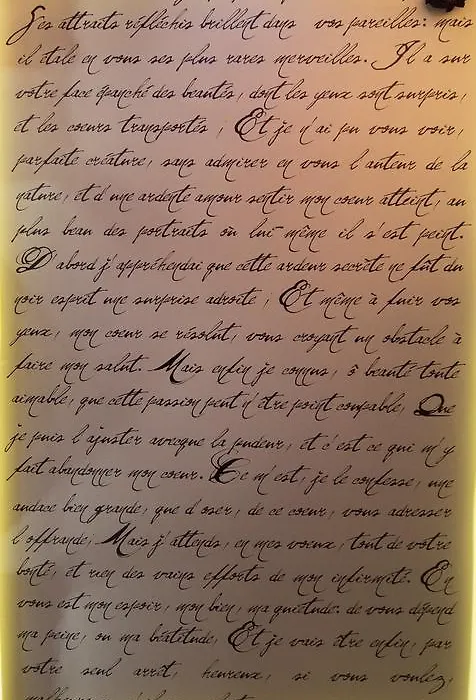 Ses attraits réfléchis brillent dans vos pareilles: mais
il étale en vous ses plus rares merveilles. Il a sur
votre face épanché des beautés, dont les yeux sont surpris,
et les coeurs transportés, Et je n'ai pu vous voir,
parfaite créature, sans admirer en vous l'auteur de la
nature, et d'une ardente amour sentir mon coeur atteint, au
plus beau des portraits où lui-même il s'est peint.
D'abord j'appréhendai que cette ardeur secrète ne fût du
noir esprit une surprise adroite, Et même à fuir vos
yeux, mon coeur se résolut, vous croyant un obstacle à
faire mon salut. Mais enfin je connus, ô beauté toute
aimable, que cette passion peut n'être point coupable, Que
je puis l'ajuster avecque la pudeur, et c'est ce qui m'y
fait abandonner mon coeur. Ce m'est, je le confesse, une
audace bien grande, que d'oser, de ce coeur, vous adresser
l'offrande, Mais j'attends, en mes voeux, tout de votre
bonté, et rien des vains efforts de mon infirmité. En
vous est mon espoir, mon bien, ma quiétude. de vous dépend
ma peine, ou ma béatitude, Et je vais être enfin, par
votre seul arrêt, heureux, si vous voulez,